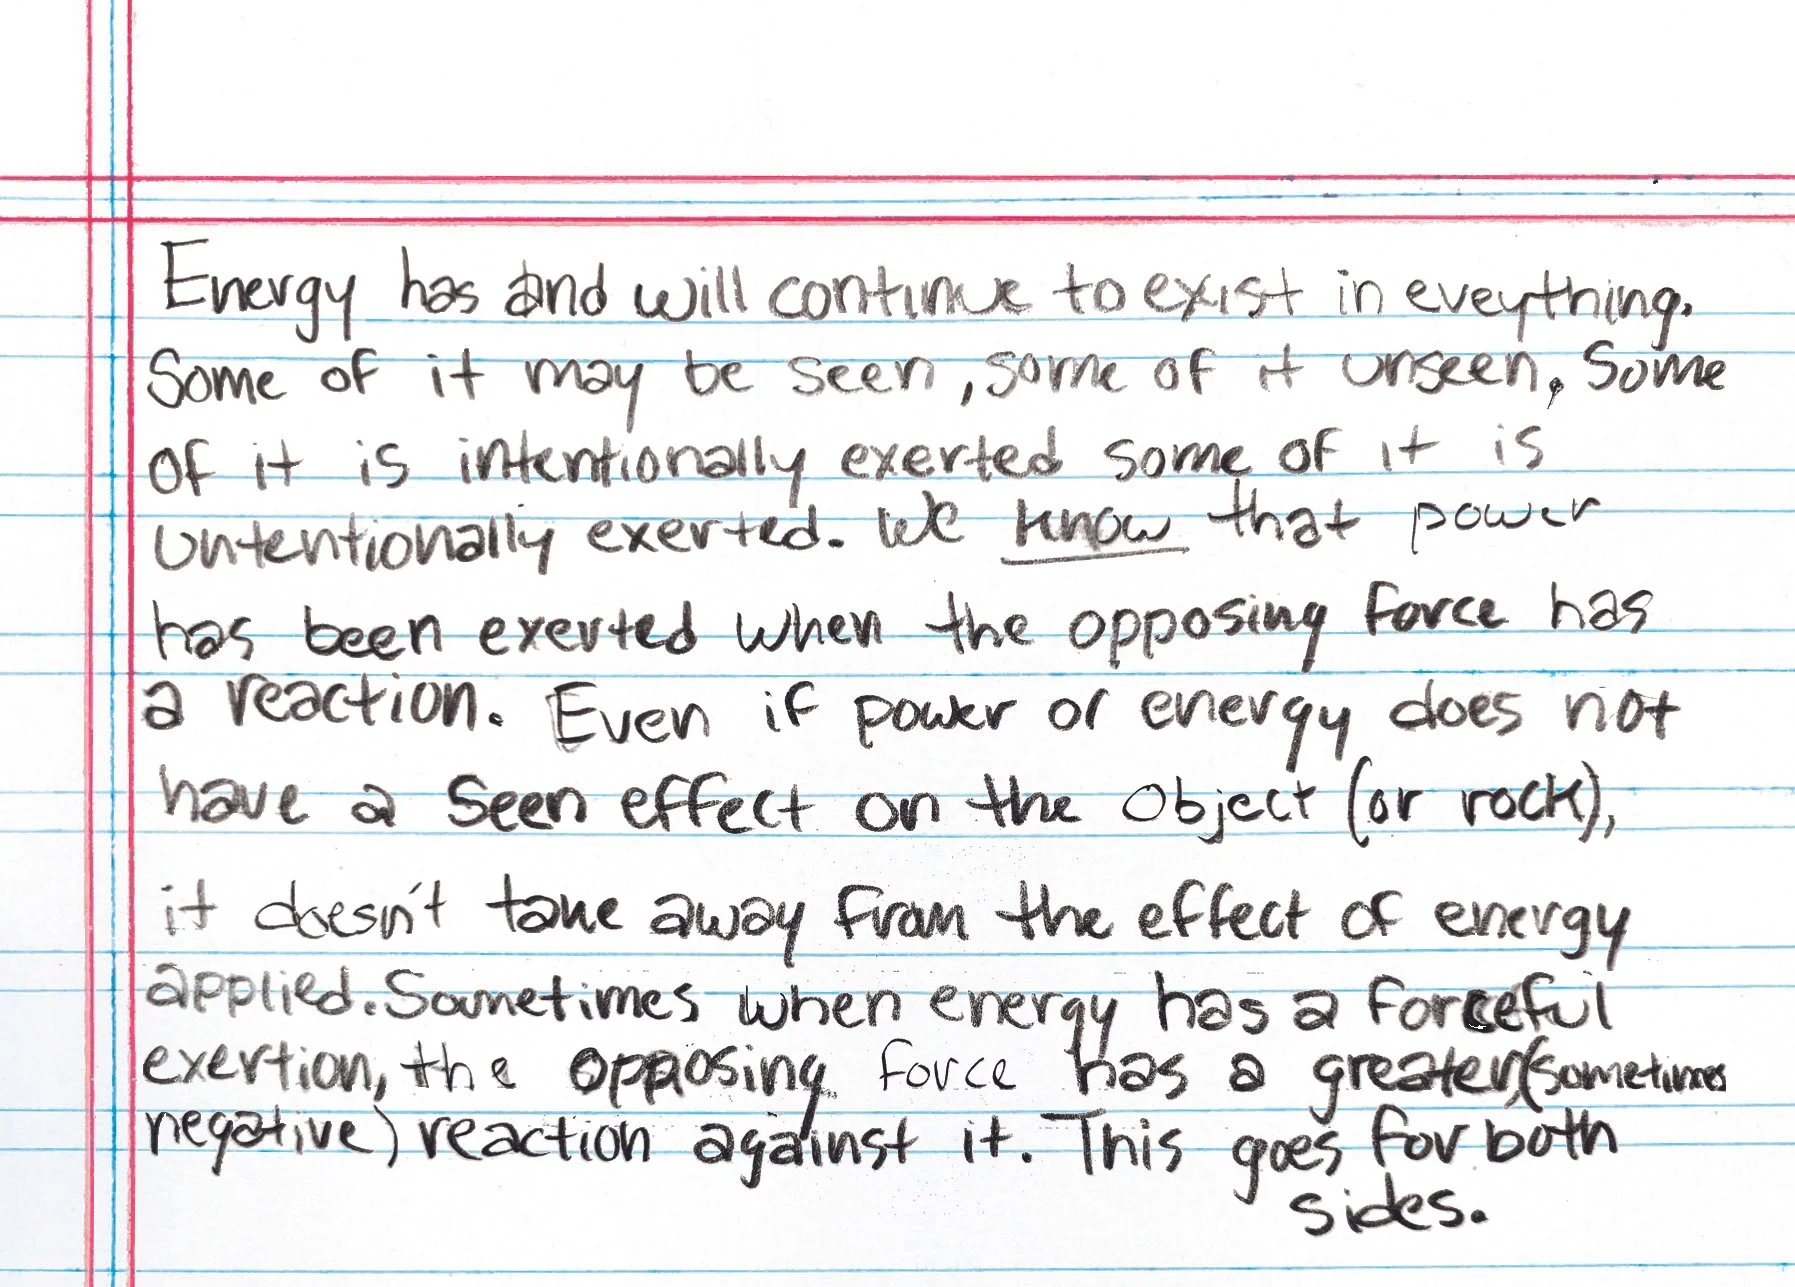 Energy has and will continue to exist in eveything.
Some of it may be seen, some of it unseen. Some
of it is intentionally exerted some of it is
untentionally exerted. We know that power
has been exerted when the opposing force has
a reaction. Even if power or energy does not
have a seen effect on the object (or rock),
it doesn't take away from the effect of energy
applied. Sometimes when energy has a forceful
exertion, the opposing force has a greater, (sometimes
negative) reaction against it. This goes for both
sides.